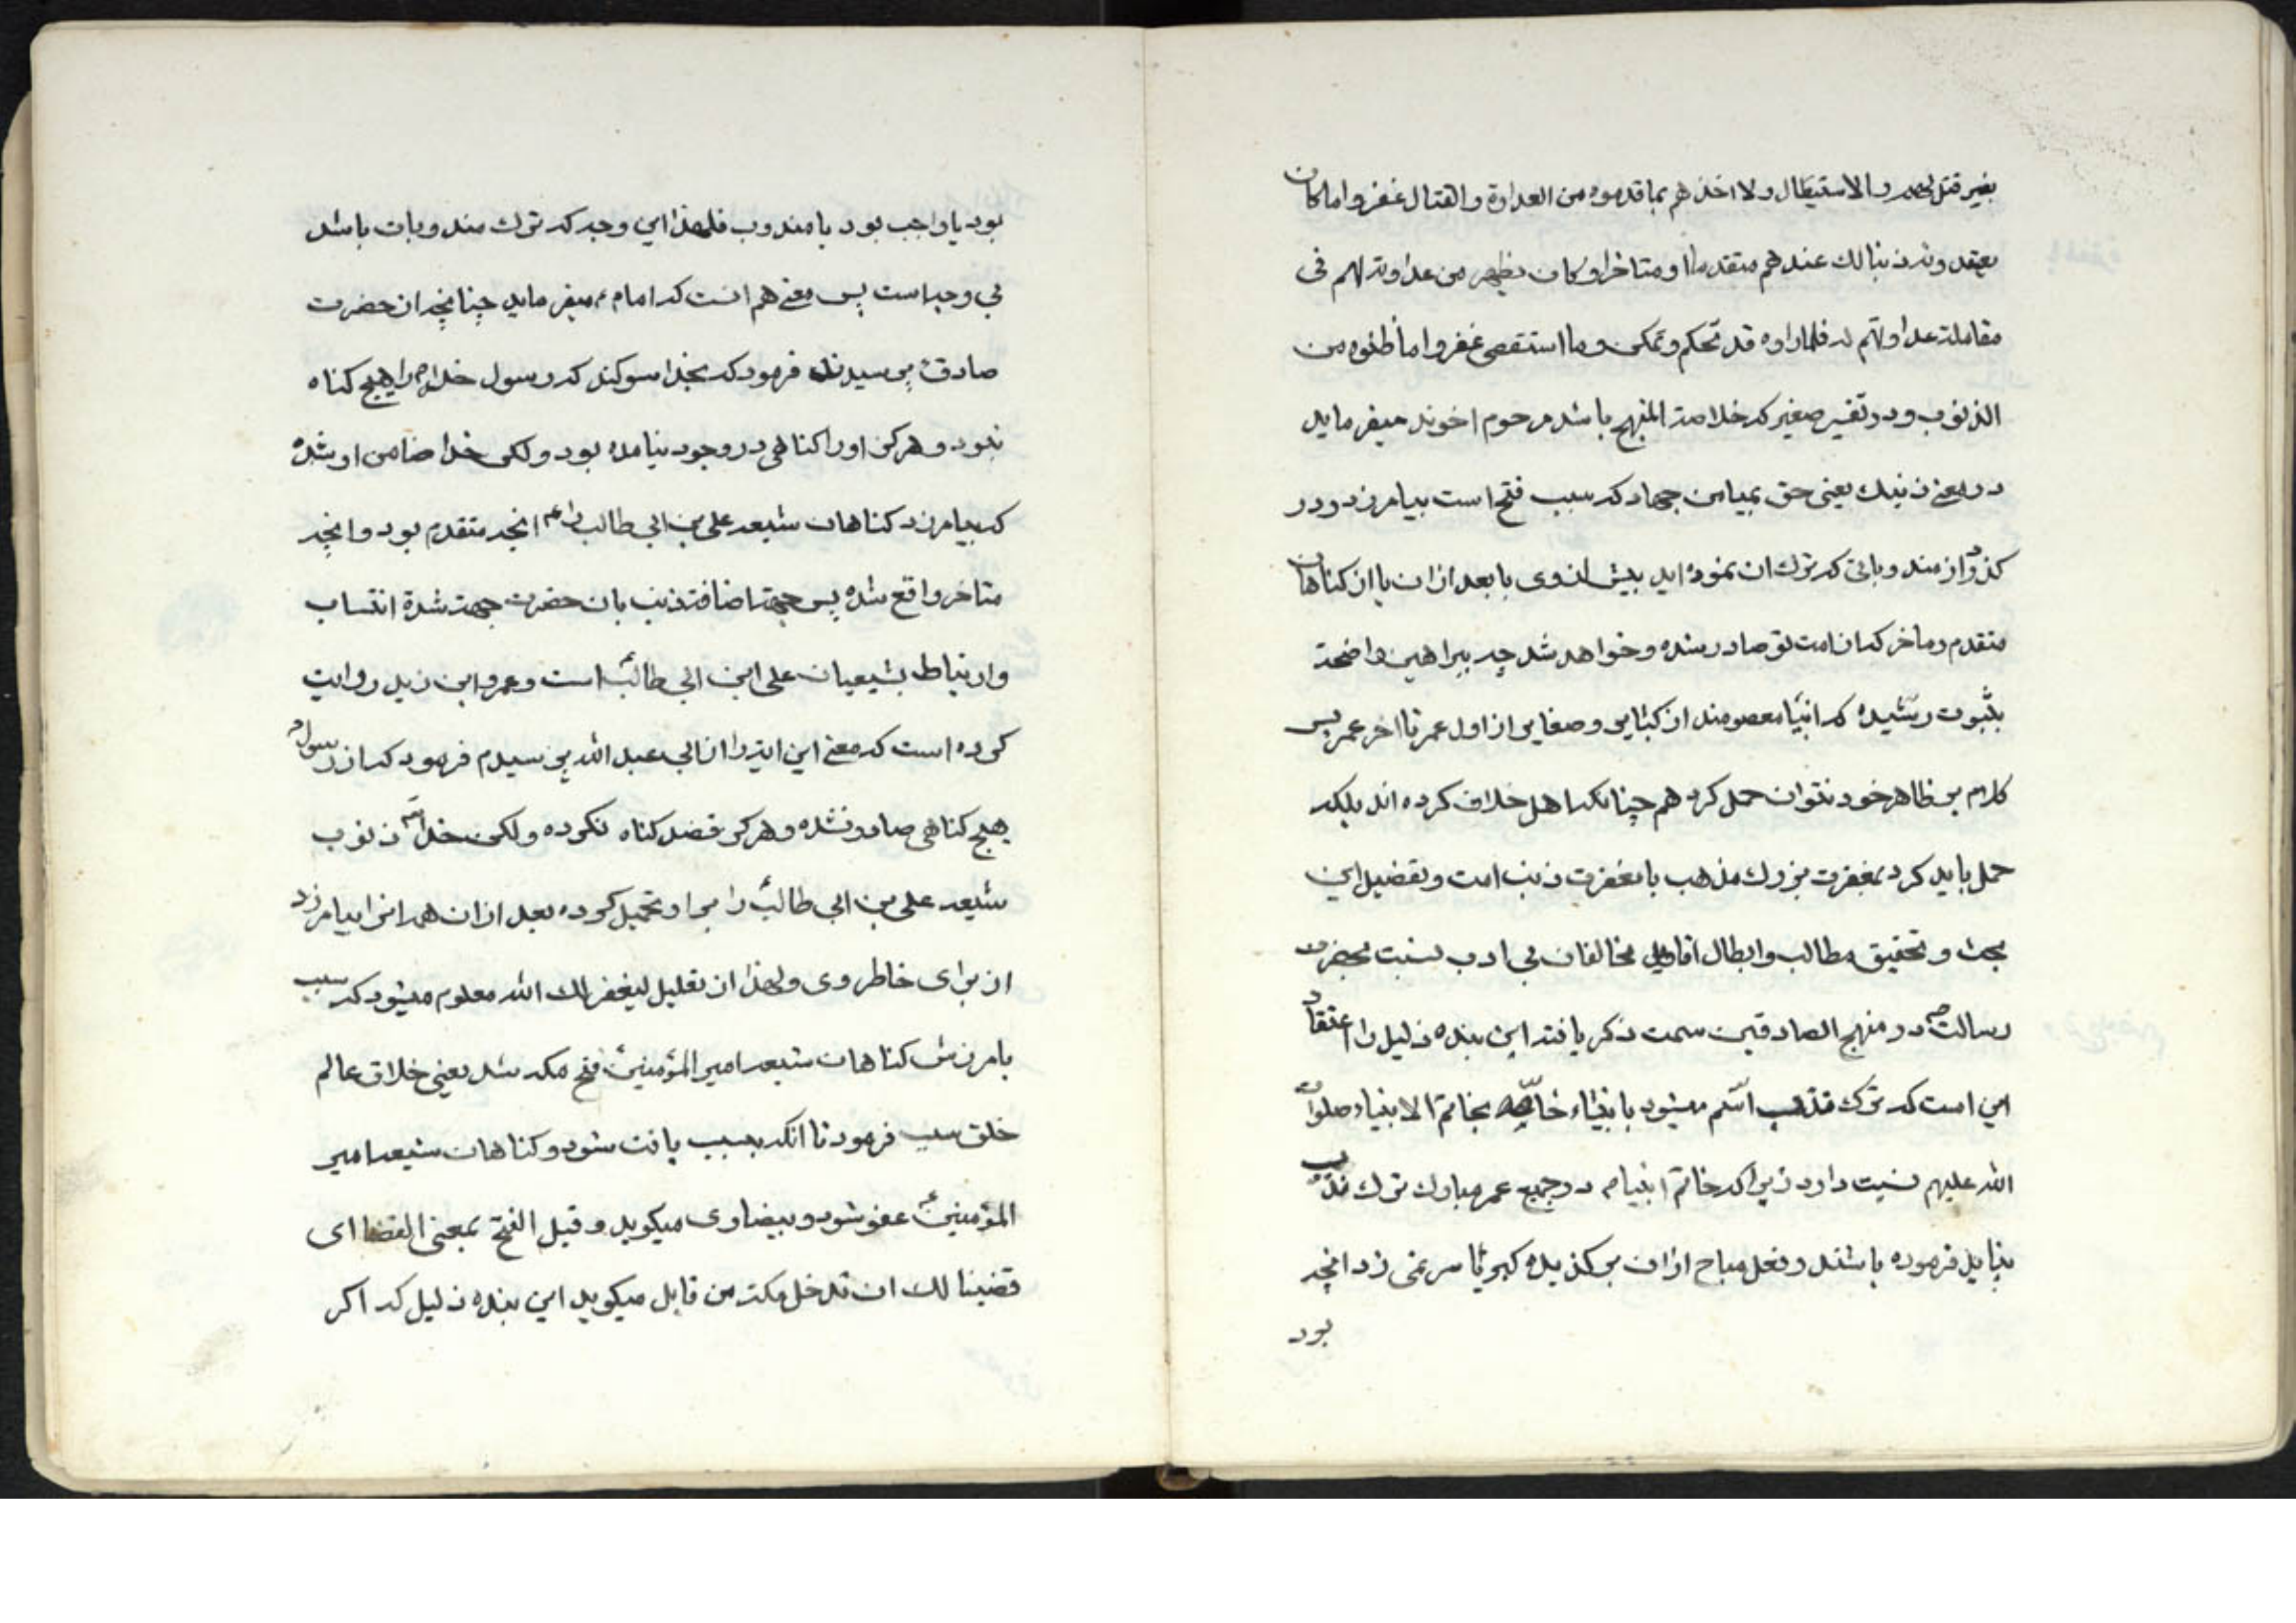 بغیر قتل لهم والاستیطال ولا اخذهم بما قدموه من العداوة والقتال غفروا ما کان
یعتقدونه ذنبا لك عندهم متقدما او متاخرا وکان یظهر من عداوته لهم فی
مقابلة عداوتهم له فلما راوه قد تحکم وتمکن وما استقصی غفروا ما ظنوه من
الذنوب ودر تفسیر صغیر که خلاصة المنهج باشد مرحوم اخوند میفرماید
در معنی ذنبك یعنی حق بمیامن جهاد که سبب فتح است بیامرزد ودر
کذرد از مندوباتی که ترك ان نموده اید بیش از وی یا بعد از ان یا از کناهان
متقدم وماخر که از امت تو صادر شده وخواهد شد چه ببراهین واضحة
بثبوت رسیده که انبیا معصومند از کبایر وصغایر از اول عمر تا اخر عمر پس
کلام بر ظاهر خود نتوان حمل کرد هم چنانکه اهل خلاف کرده اند بلکه
حمل باید کرد بمغفرت بر ترك مذهب یا مغفرت ذنب امت وتفضیل این
بحث وتحقیق مطالب وابطال اقاویل مخالفان بی ادب نسبت بحضرت
رسالت ص در منهج الصادقین سمت ذکر یافته این بنده ذلیل را اعتقاد
این است که ترك مندب اسلم میشود بانبیاء خاصه بخاتم الانبیاء صلوات
الله علیهم نسبت داود زیرا که خاتم انبیا م در جمیع عمر مبارك ترك مندب
نباید فرموده باشند وفعل مباح ازان بر کذیده کبریا سر نمی زد انچه
بود
بود یا واجب بود یا مندوب فلهذا این وجه که ترك مندوبات باشد
بی وجه است پس معنی هم انست که امام ع میفرماید چنانچه از حضرت
صادق ع پرسیدند فرمود که بخدا سوکند که رسول خدا ص را هیچ کناه
نبود وهرکز او را کناهی در وجود نیامده بود ولکن خدا ضامن او شده
که بیامرزد کناهان شیعه علی بن ابی طالب را ع انچه متقدم بود وانچه
متاخر واقع شده پس جهة اضافة ذنب بان حضرت جهة شدة انتساب
وارتباط بشیعیان علی ابن ابی طالب ع است وعمرو ابن زید روایت
کرده است که معنی این ایه را از ابی عبد الله پرسیدم فرمود که از رسول ص
هیچ کناهی صادر نشده وهرکز قصد کناه نکرده ولکن خدا ذنوب
شیعه علی بن ابی طالب ع را بر او تحمیل کرده بعد ازان همه انرا بیامرزد
از برای خاطر وی ولهذا ان تعلیل لیغفر لك الله معلوم میشود که سبب
بامرزش کناهان شیعه امیر المؤمنین ع فتح مکه شد یعنی خلاق عالم
خلق سبب فرمود تا انکه بسبب یافت شود وکناهان شیعه امیر
المؤمنین ع عفو شود وبیضاوی میکوید وقیل الفتح بمعنی القضا ای
قضینا لك ان تدخل مکة من قابل میکوید این بنده ذلیل که اکر